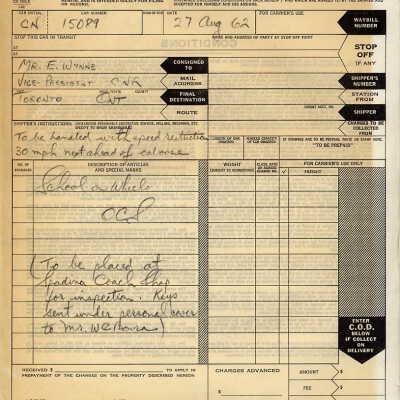 CAR INITIAL CAR NUMBER
CN 15089 27 Aug 62
FOR CARRIER'S USE
WAYBILL NUMBER
STOP THIS CAR IN TRANSIT
NAME AND ADDRESS OF PARTY AT STOP OFF POINT
STOP OFF IF ANY
MR. E. WYNNE
CONSIGNED TO
VICE-PRESIDENT CNR
MAIL ADDRESS
SHIPPER'S NUMBER
TORONTO ONT
FINAL DESTINATION
STATION FROM
ROUTE
SHIPPER
SHIPPER'S INSTRUCTIONS
CHARGES TO BE COLLECTED FROM
To be handled with speed restriction
30 mph not ahead of caboose
"TO BE PREPAID"
DESCRIPTION OF ARTICLES AND SPECIAL MARKS
WEIGHT
FOR CARRIER'S USE ONLY
FREIGHT
School on Wheels
OCS
(To be placed at
Spadina Coach Shop
for inspection. Keys
sent under personal cover
to Mr. )
ENTER C.O.D. BELOW IF COLLECT ON DELIVERY
RECEIVED $ TO APPLY IN
PREPAYMENT OF THE CHARGES ON THE PROPERTY DESCRIBED HEREON
CHARGES ADVANCED
AMOUNT $
FEE $
$